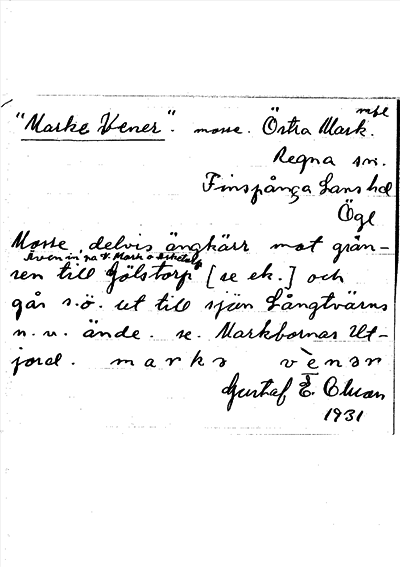 "Marke Vener". mosse. Östra Mark. mfl
Regna sn.
Finspånga Läns hd
Ögl
Mosse, delvis ängkärr mot grän-
Även in på V. Mark o
sen till Gölstorp [se ek.] och
går s.ö. ut till sjön Långtvärns
n.v. ände. se. Markbornas Ut-
jord. marka venar
Gustaf E. Olson
1931